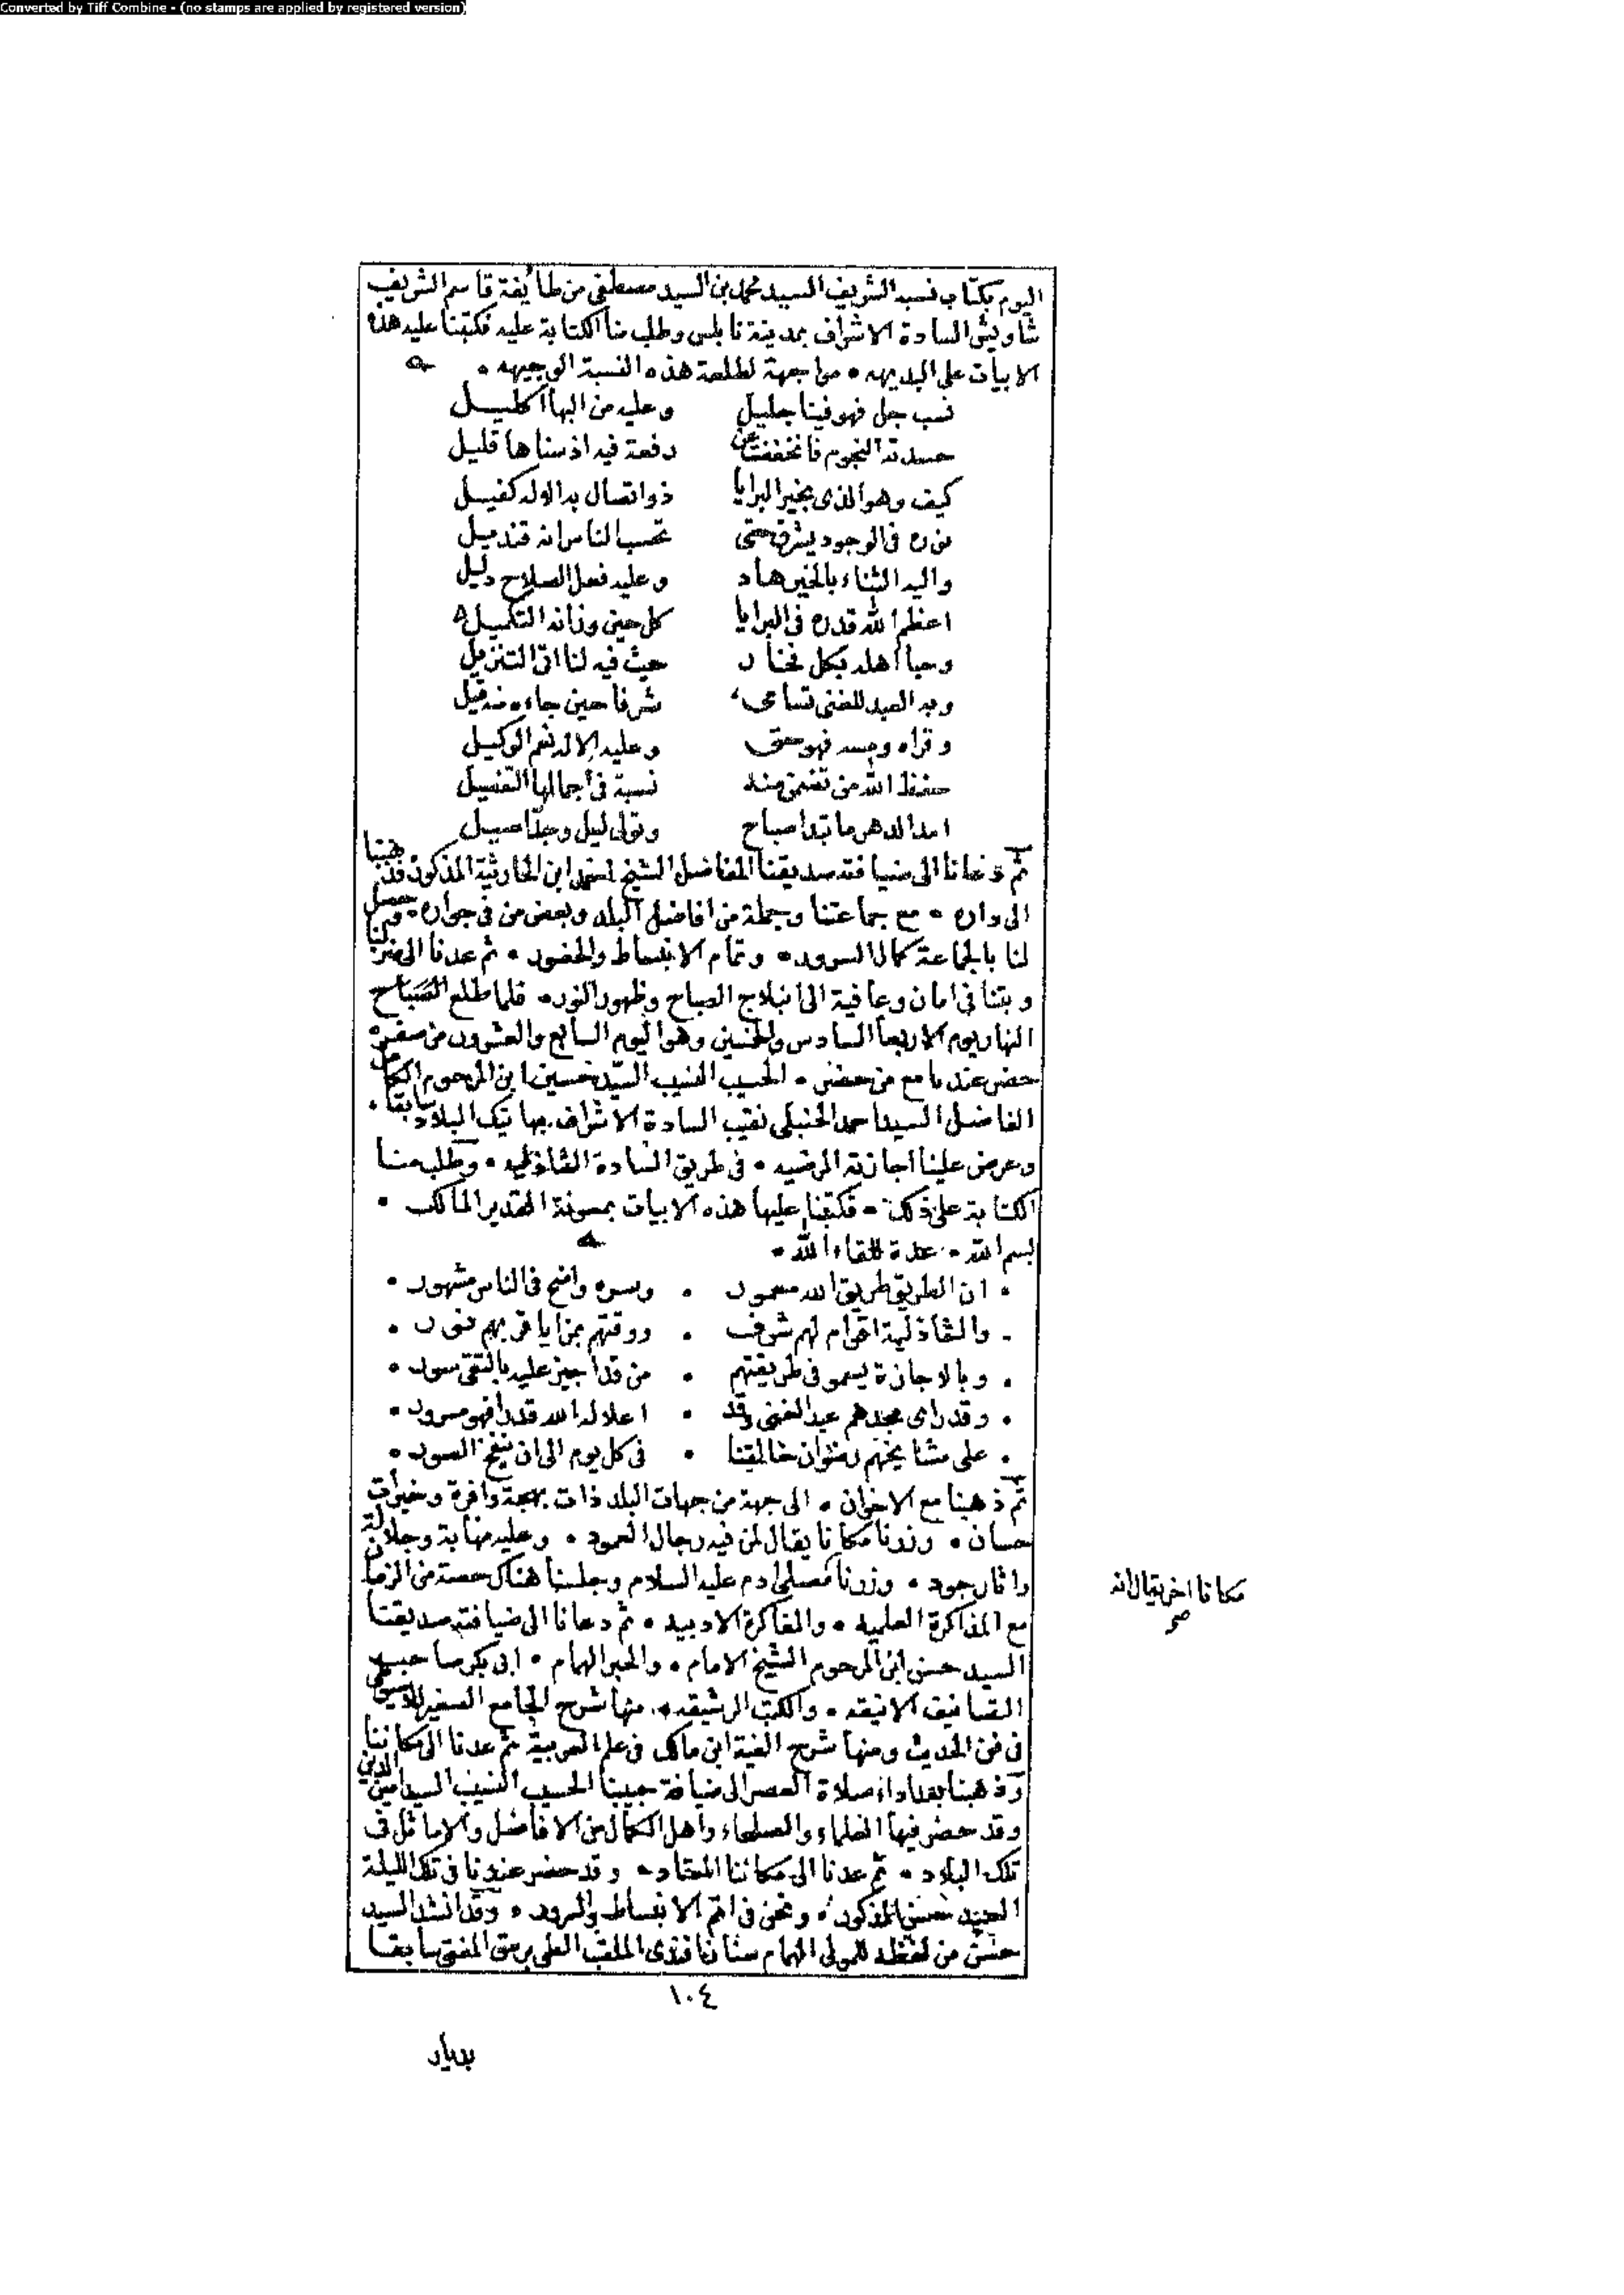 Converted by Tiff Combine - (no stamps are applied by registered version)
اليوم بكتاب نسبه الشريف السيد محمد بن السيد مصطفى من طائفة قاسم الشريف
شاويش السادة الاشراف بمدينة نابلس وطلب منا الكتابة عليه فكتبنا عليه هذه
الابيات على البديهه • مواجهة لطلعة هذه النسبة الوجيهه •
نسب جل فهو فينا جليل وعليه من البها اكليل
حسدته النجوم فانخفضت عن رفعة فيه اذ سناها قليل
كيف وهو الذى بخير البرايا ذو اتصال به الوله كفيل
نوره فى الوجود يشرق حتى تحسب الناس انه قنديل
واليه الثناء بالخير هاد وعليه فعل الصلاح دليل
اعظم الله قدره فى البرايا كل حين وزانه التكميل
وحبا اهله بكل فخار حيث فيه لنا اتى التنزيل
وبه العبد للغنى تسامى شرفا حين جاءه منه قيل
وقراه ومسه فهو حق وعليه الاله نعم الوكيل
حفظ الله من تضمن منه نسبة فى اجمالها التفصيل
امد الدهر ما تبدا صباح وتولى ليل وجدّ اصيل
ثم دعانا الى ضيافته صديقنا الفاضل الشيخ احمد ابن الحارثية المذكور فذهبنا
الى داره • مع جماعتنا وجملة من افاضل البلد وبعض من فى جواره • وحصل
لنا بالجماعة كمال السرور • وتمام الانبساط والحضور • ثم عدنا الى منزلنا
وبتنا فى امان وعافية الى انبلاج الصباح وظهور النور • فلما طلع الصباح
النهار يوم الاربعا السادس والخمسين وهو اليوم السابع والعشرون من سفر
حضر عندنا مع من حضر • الحسيب النسيب السيد حسين ابن المرحوم الكامل
الفاضل السيد احمد الحنبلى نقيب السادة الاشراف بهاتيك البلاد سابقا •
وعرض علينا اجازته المرضيه • فى طريق السادة الشاذليه • وطلب منا
الكتابة على ذلك • فكتبنا عليها هذه الابيات بمعونة القدير المالك •
بسم الله • عدة للقاء الله •
• ان الطريق طريق الله معمور • وسره واضح فى الناس مشهور •
• والشاذلية اقوام لهم شرف • ووقتهم بمزايا قربهم نور •
• وبالاجازة يسمو فى طريقتهم • من قد اجيز عليه بالتقى سور •
• وقد راى مجدهم عبد الغنى وقد • اعلا له الله قدرا فهو مسرور •
• على مشايخهم رضوان خالقنا • فى كل يوم الى ان ينفخ الصور •
ثم ذهبنا مع الاخوان • الى جهة من جهات البلد ذات بهجة وافرة وخيرات
حسان • وزرنا مكانا يقال لمن فيه رجال العمود • وعليه مهابة وجلالة
واثار جود • وزرنا مصلى ادم عليه السلام وجلسنا هناك حصة من الزمان
مكانا اخر يقال انه
صح
مع المذاكرة العلميه • والمفاكرة الادبيه • ثم دعانا الى ضيافته صديقنا
السيد حسن ابن المرحوم الشيخ الامام • والحبر الهمام • ابى بكر صاحب
التصانيف الانيقه • والكتب الرشيقه • منها شرح الجامع الصغير للاسيوطى
فى فن الحديث ومنها شرح الفية ابن مالك فى علم العربية ثم عدنا الى مكاننا
وذهبنا بعد اداء صلاة العصر الى ضيافة حبيبنا الحسيب النسيب السيد امين الدين
وقد حضر فيها العلماء والصلحاء واهل الكمال من الافاضل والاماثل فى
تلك البلاد • ثم عدنا الى مكاننا المعتاد • وقد حضر عندنا فى تلك الليلة
السيد حسن المذكور • ونحن فى اتم الانبساط والسرور • وقد انشد السيد
حسن من لفظه للمولى الهمام سنان افندى الملقب العلى برعق المفتى سابقا
١٠٤
بديار